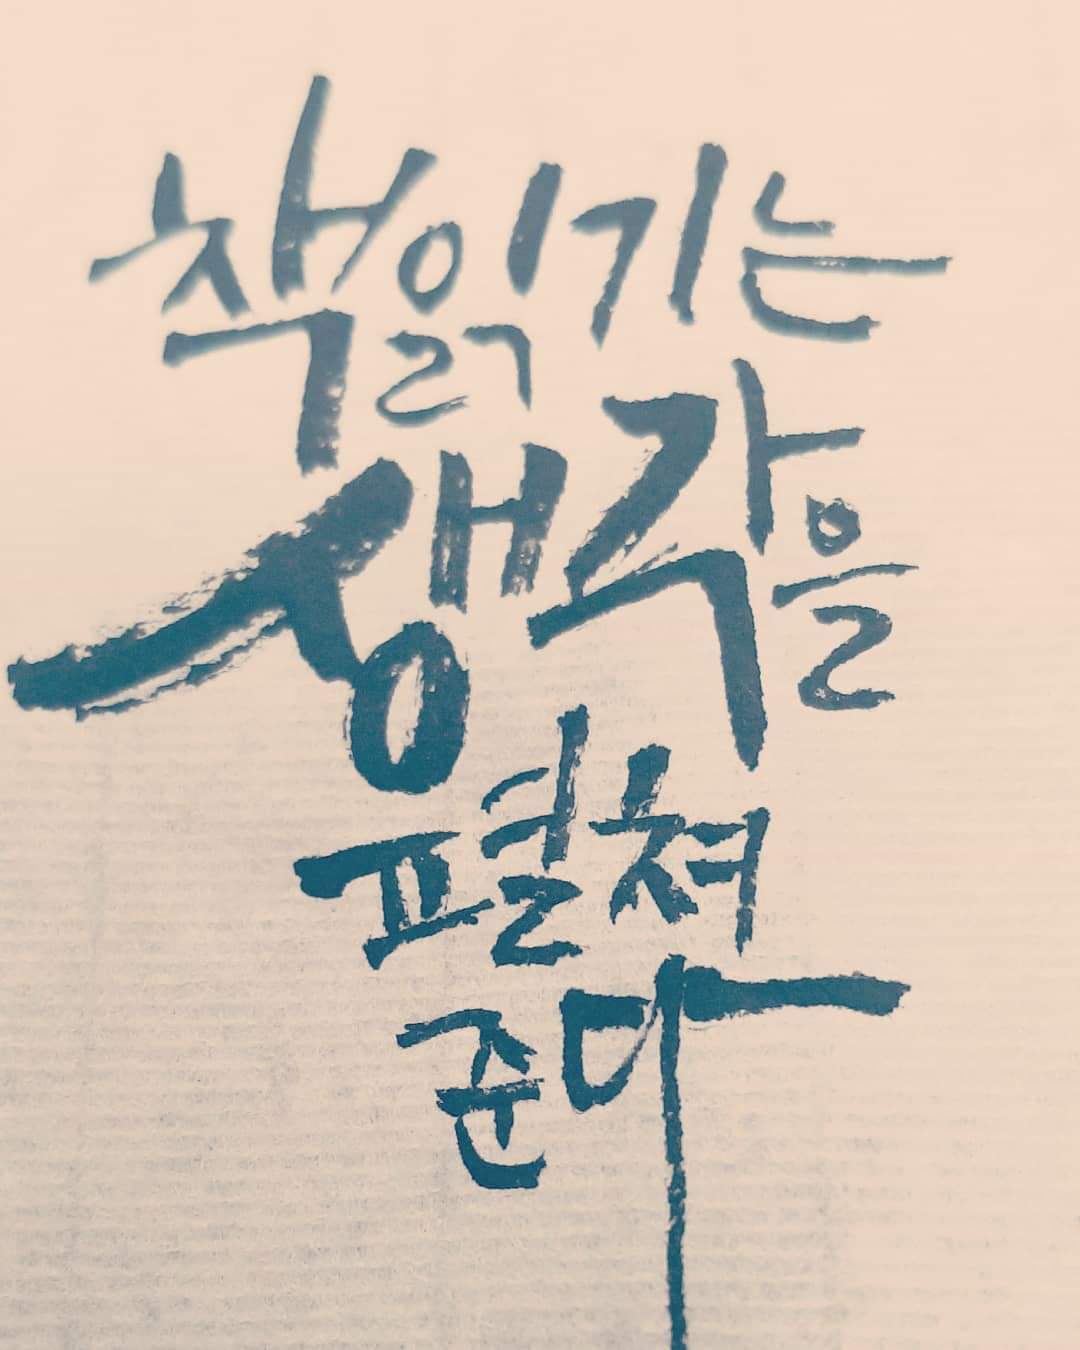 책읽기는
생각을
펼쳐
준다